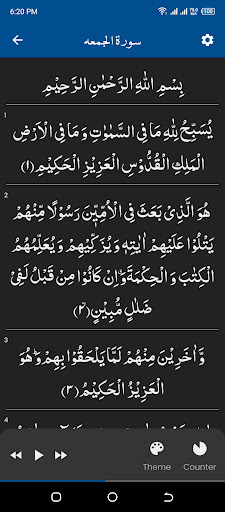 6:20 PM
سورة الجمعه
بِسْمِ اللهِ الرَّحْمٰنِ الرَّحِيْمِ
1
يُسَبِّحُ لِلّٰهِ مَا فِى السَّمٰوٰتِ وَمَا فِى الْاَرْضِ
الْمَلِكِ الْقُدُّوْسِ الْعَزِيْزِ الْحَكِيْمِ ﴿۱﴾
2
هُوَ الَّذِىْ بَعَثَ فِى الْاُمِّيّٖنَ رَسُوْلًا مِّنْهُمْ
يَتْلُوْا عَلَيْهِمْ اٰيٰتِهٖ وَيُزَكِّيْهِمْ وَيُعَلِّمُهُمُ
الْكِتٰبَ وَالْحِكْمَةَ وَاِنْ كَانُوْا مِنْ قَبْلُ لَفِىْ
ضَلٰلٍ مُّبِيْنٍ ﴿۲﴾
3
وَّاٰخَرِيْنَ مِنْهُمْ لَمَّا يَلْحَقُوْا بِهِمْ وَهُوَ
الْعَزِيْزُ الْحَكِيْمُ ﴿۳﴾
4
Theme
Counter